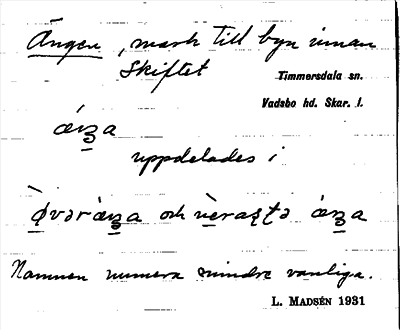 Ängen , mark till byn innan
skiftet
Timmersdala sn.
Vadsbo hd. Skar. l.
uppdelades i
och
Namnen numera mindre vanliga.
L. MADSÉN 1931